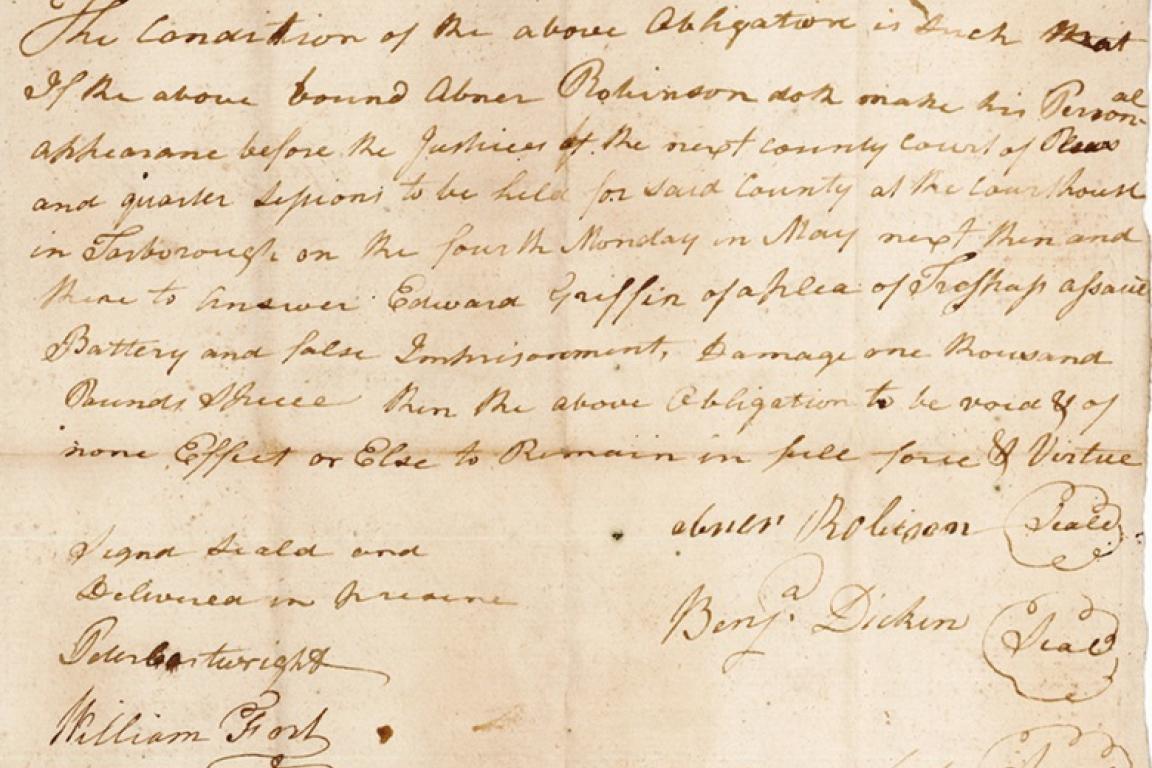 The Condition of the above Obligation is Such that
If the above bound Abner Robinson doth make his Personal
appearane before the Justices of the next County Court of Pleas
and quarter Sessions to be held for said County at the Courthouse
in Tarborough on the fourth Monday in May next then and
there to Answer Edward Griffin of a plea of Trespass assault
Battery and false Imprisonment, Damage one thousand
Pounds Specie then the above Obligation to be void & of
none Effect or Else to Remain in full force & Virtue
abner Robison Seald
Signd Seald and
Delivered in
Benja. Dicken Seal
Peter Cartwright
William Fort